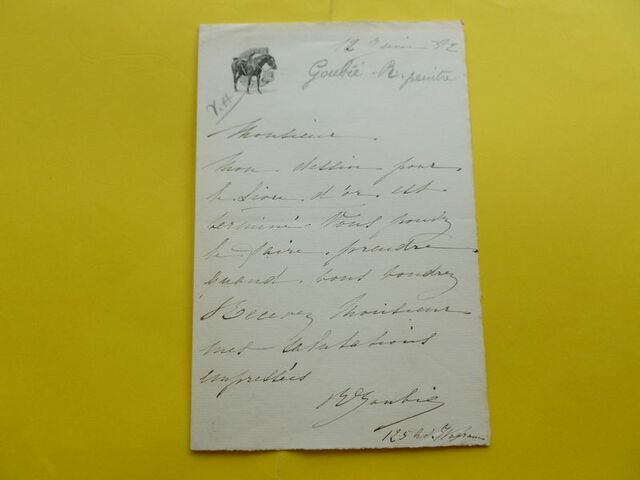 12 Juin 92
Goubié R. peintre
Monsieur
Mon dessin pour
le Livre d'or est
terminé. Vous pouvez
le faire prendre
quand vous voudrez
Recevez Monsieur
mes salutations
empressées
R Goubie
125 Av.